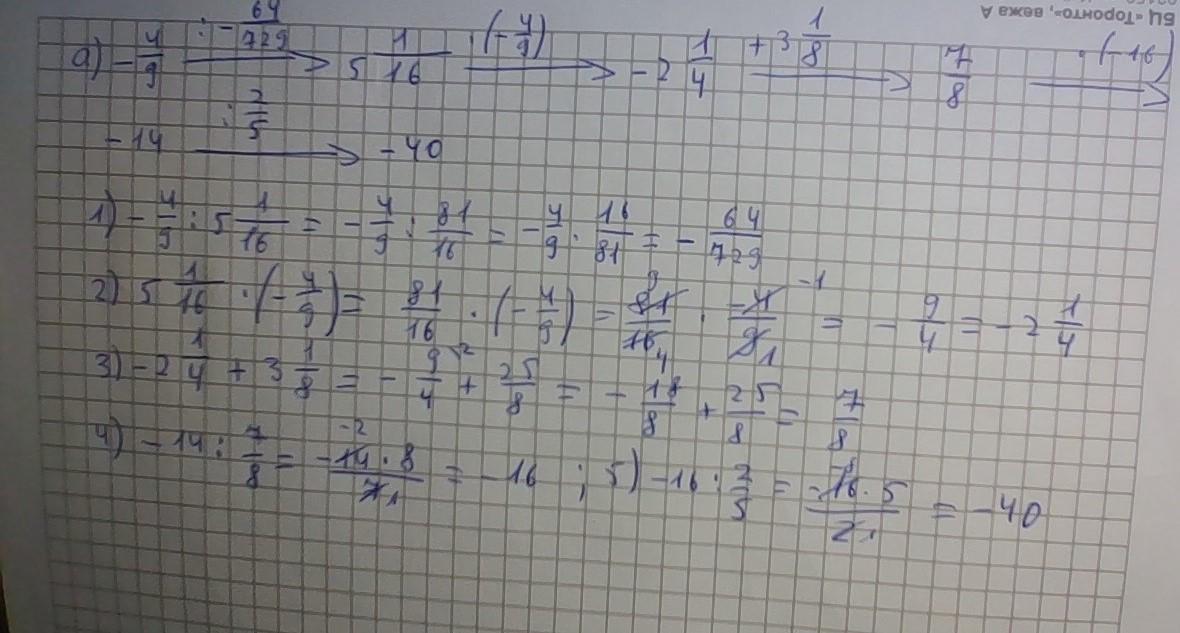 БЦ «Торонто», вежа А
а) -4/9 : -64/729 → 5 1/16 · (-4/9) → -2 1/4 + 3 1/8 → 7/8 · (-16) →
-14 : 2/5 → -40
1) -4/9 : 5 1/16 = -4/9 : 81/16 = -4/9 · 16/81 = -64/729
2) 5 1/16 · (-4/9) = 81/16 · (-4/9) = 81 9/16 4 · -4 -1/9 1 = -9/4 = -2 1/4
3) -2 1/4 + 3 1/8 = -9/4 2 + 25/8 = -18/8 + 25/8 = 7/8
4) -14 : 7/8 = -2 -14 · 8/7 1 = -16 ; 5) -16 : 2/5 = -16 · 5/2 1 = -40